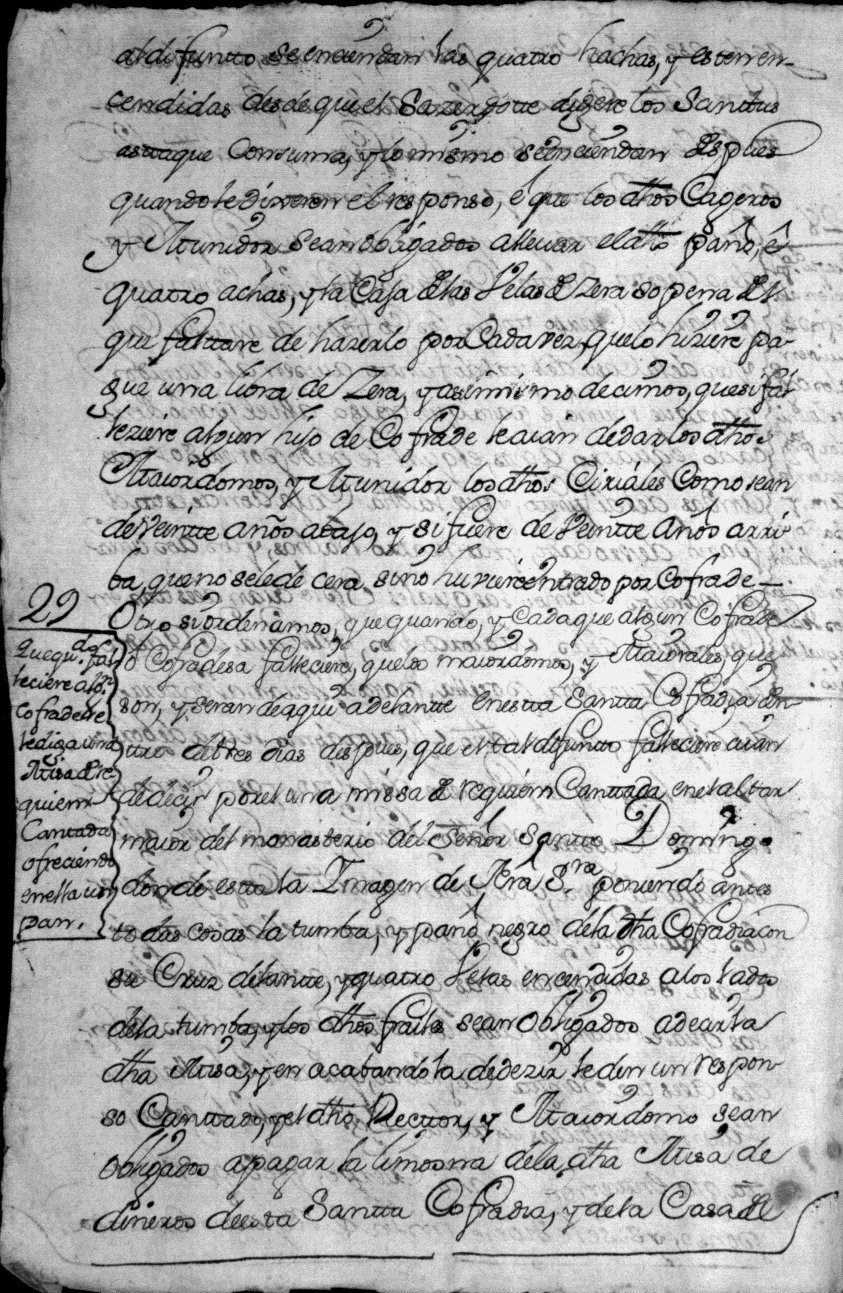 al difuntto se enciendan las quatro hachas, y esten en-
cendidas desde que el Sazerdotte dijere los Santtus
asttaque Consuma, y lo mismo se enciendan despues
quando le dixeren el responso, é que los dhos Cageros
y Munidor sean obligados a llevar el dho paño, é
quatro achas, y la Caja de las Velas de Zera so pena del
que faltare de hazerlo por Cada vez, que lo hiziere pa-
gue una libra de Zera, y asimismo decimos, que si fal
leziere algun hijo de Cofrade le aian de dar los dhos
Maiordomos, y Munidor los dhos Ciriales Como sean
de veintte años abajo, y si fuere de Veintte Años arri
ba, que no se le dé cera sino huviere entrado por Cofrade —
29
Quequ.do fal
leciere alg.n
Cofrade se
le diga una
Misa de Re
quiem
Cantada
ofreciendo
en ella un
pan.
Otro si ordenamos, que quando, y Cada que algun Cofrade
ó Cofradesa falleciere, que los maiordomos, y Maiorales, que
son, y seran de aqui adelantte en esta Santta Cofradia, den
ttro de tres dias despues, que el tal difuntto falleciere aian
de decir por el una missa de requiem Canttada en el altar
maior del monasterio del Señor Santto Domingo
donde esta la Imagen de Nra S.ra poniendo antes
todas cosas la tumba, y paño negro de la dha Cofradia con
su Cruz delantte, y quatro Velas encendidas a los lados
de la tumba, y los dhos frailes sean Obligados a decir la
dha Misa, y en acabandola de dezir le den un respon-
so Canttado, y el dho Rector, y Maiordomo sean
Obligados a pagar la limosna de la dha Misa de
dineros de esta Santta Cofradia, y de la Casa de